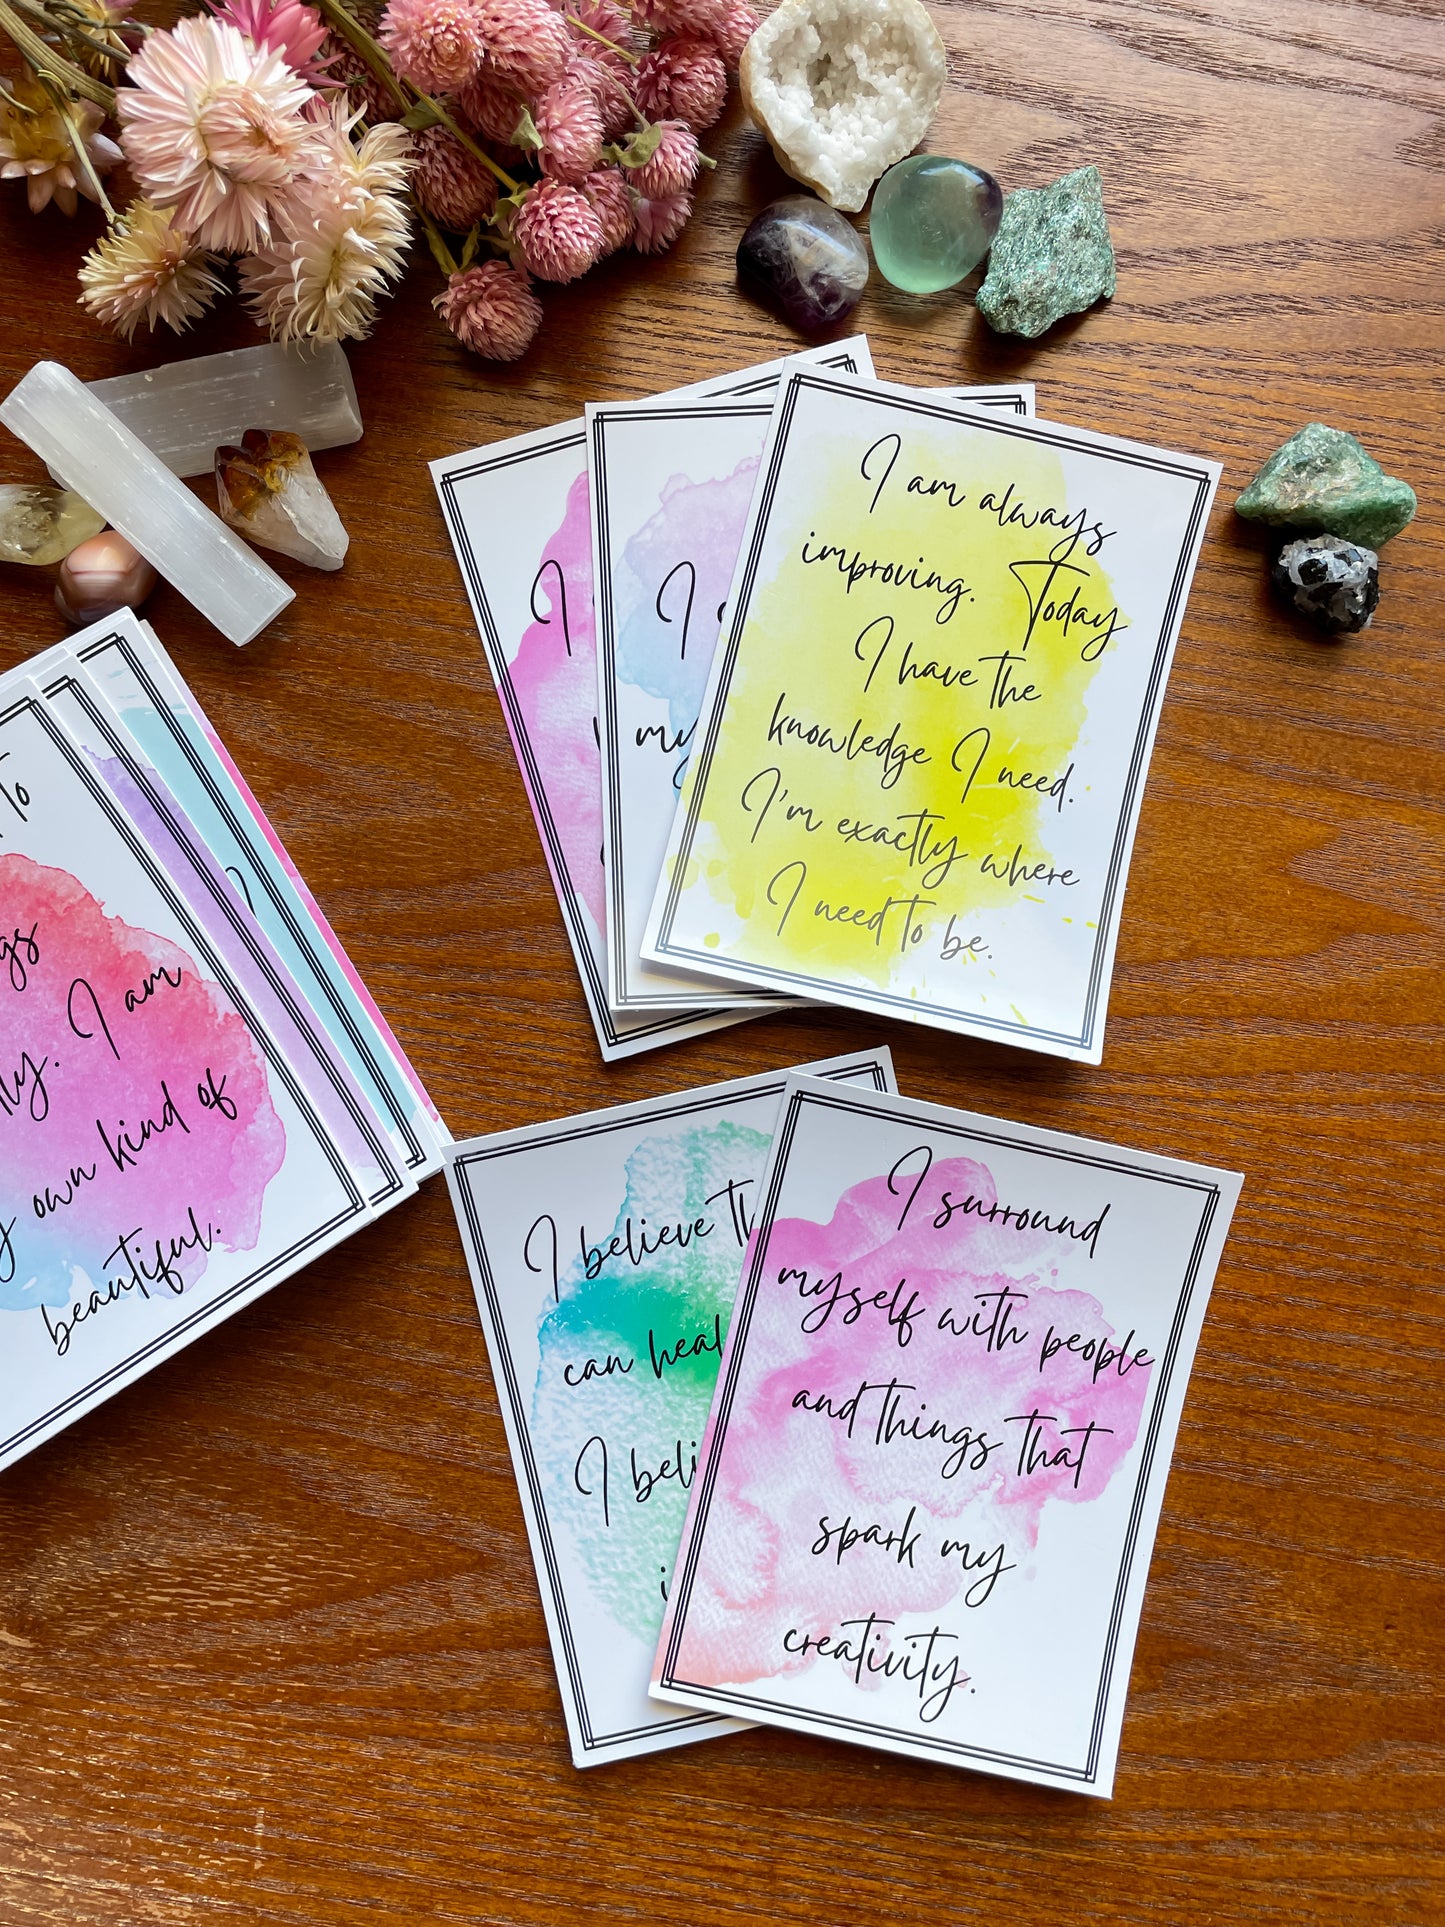 I am always
improving. Today
I have the
knowledge I need.
I'm exactly where
I need to be.
I
I
my
To
I am
own kind of
beautiful.
I believe
can heal
I
I surround
myself with people
and things that
spark my
creativity.